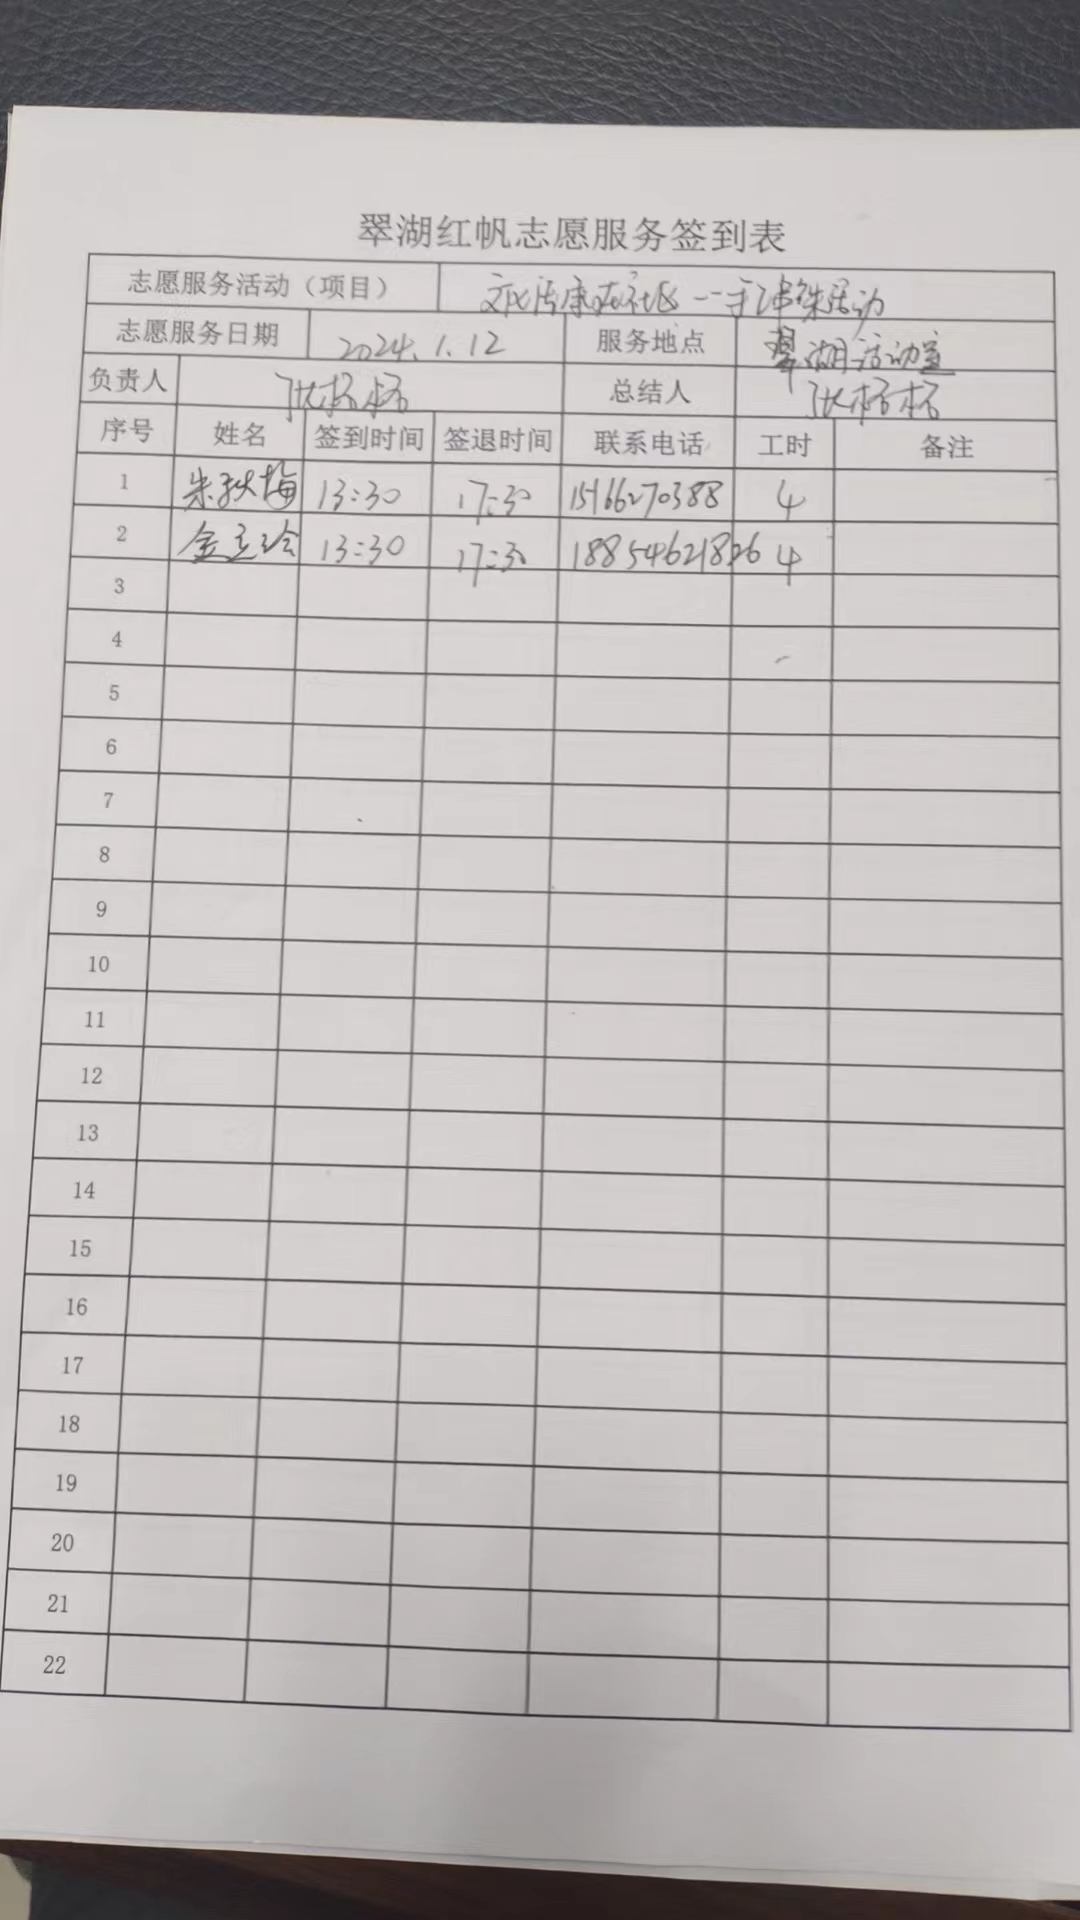 翠湖红帆志愿服务签到表
志愿服务活动（项目） 文化活康在社区——手工串珠活动
志愿服务日期 2024.1.12 服务地点 翠湖活动室
负责人 张杨杨 总结人 张杨杨
序号 姓名 签到时间 签退时间 联系电话 工时 备注
1 朱秋梅 13:30 17:30 15166270388 4
2 金立玲 13:30 17:30 18854621826 4
3
4
5
6
7
8
9
10
11
12
13
14
15
16
17
18
19
20
21
22